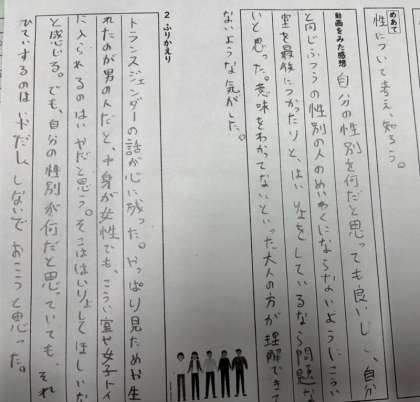 めあて
性について考え、知ろう。
動画をみた感想
自分の性別を何だと思っても良いし、自分
と同じふつうの性別の人のめいわくにならないようにこうい
室を最後につかったりと、はいりょをしているなら問題な
いと思った。意味をわかってないといった大人の方が理解できて
ないような気がした。
2 ふりかえり
トランスジェンダーの話が心に残った。やっぱり見ためが生
れたのが男の人だと、中身が女性でも、こうい室や女子トイ
に入られるのはいやだと思う。そこははいりょしてほしいな
と感じる。でも、自分の性別が何だと思っていても、それ
ひていするのはいやだし、しないでおこうと思った。